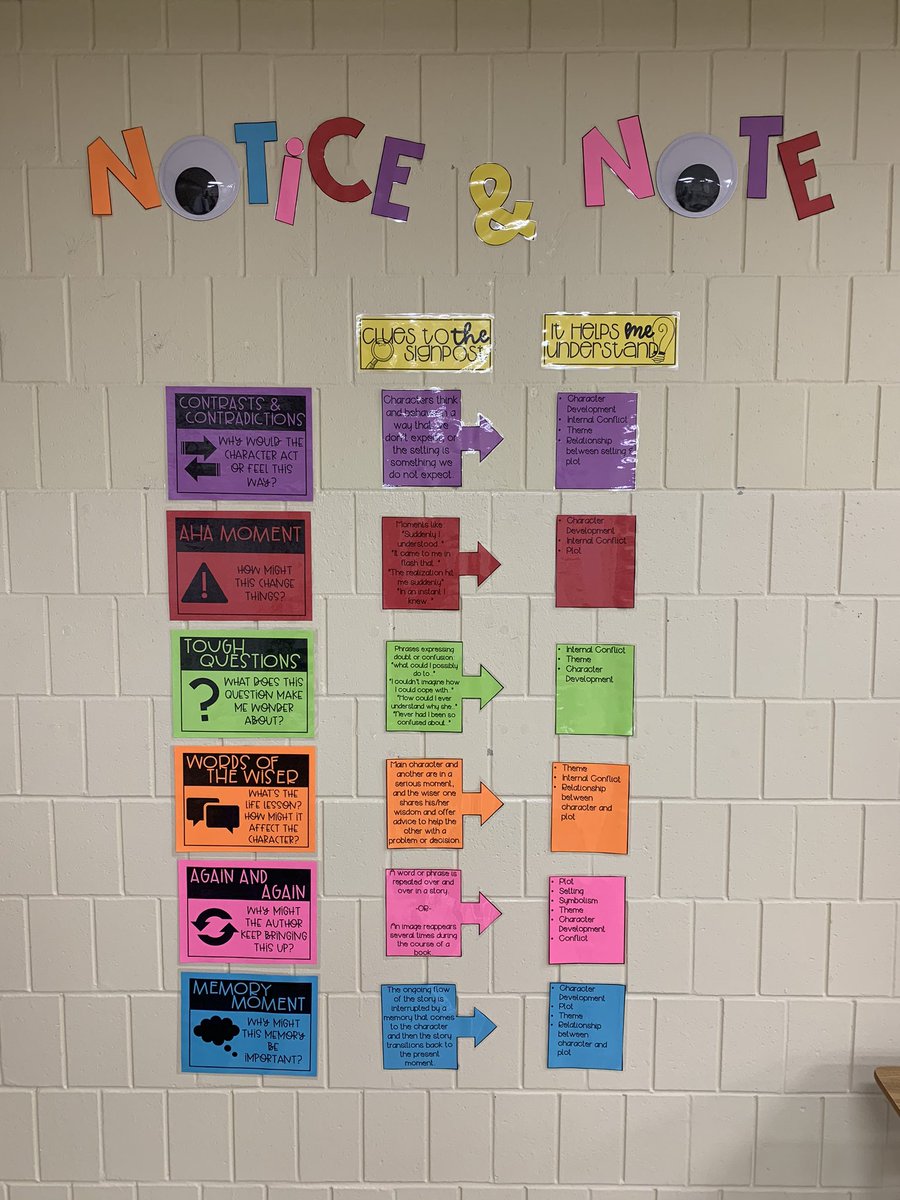 NOTiCE & NOTE
CLUES TO the
SIGNPOST
IT HELPS me
UNDERSTAND
CONTRASTS &
CONTRADICTIONS
WHY WOULD THE
CHARACTER ACT
OR FEEL THIS
WAY?
Characters think
and behave in a
way that we
don't expect, or
the setting is
something we
do not expect.
• Character
Development
• Internal Conflict
• Theme
• Relationship
between setting &
plot
AHA MOMENT
HOW MIGHT
THIS CHANGE
THINGS?
Moments like
"Suddenly I
understood..."
"It came to me in
flash that..."
"The realization hit
me suddenly"
"In an instant I
knew..."
• Character
Development
• Internal Conflict
• Plot
TOUGH
QUESTIONS
?
WHAT DOES THIS
QUESTION MAKE
ME WONDER
ABOUT?
Phrases expressing
doubt or confusion:
"what could I possibly
do to..."
"I couldn't imagine how
I could cope with..."
"How could I ever
understand why she..."
"Never had I been so
confused about..."
• Internal Conflict
• Theme
• Character
Development
WORDS OF
THE WISER
WHAT'S THE
LIFE LESSON?
HOW MIGHT IT
AFFECT THE
CHARACTER?
Main character and
another are in a
serious moment,
and the wiser one
shares his/her
wisdom and offer
advice to help the
other with a
problem or decision.
• Theme
• Internal Conflict
• Relationship
between
character and
plot
AGAIN AND
AGAIN
WHY MIGHT
THE AUTHOR
KEEP BRINGING
THIS UP?
A word or phrase is
repeated over and
over in a story.
-OR-
An image reappears
several times during
the course of a
book.
• Plot
• Setting
• Symbolism
• Theme
• Character
Development
• Conflict
MEMORY
MOMENT
WHY MIGHT
THIS MEMORY
BE
IMPORTANT?
The ongoing flow
of the story is
interrupted by a
memory that comes
to the character
and then the story
transitions back to
the present
moment.
• Character
Development
• Plot
• Theme
• Relationship
between
character and
plot